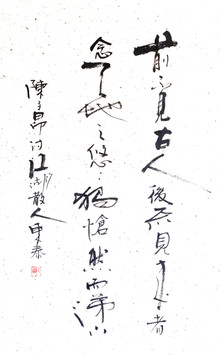 前不見古人後不見来者
念天地之悠々獨愴然而涕下
陳子昂詩江湖散人申泰